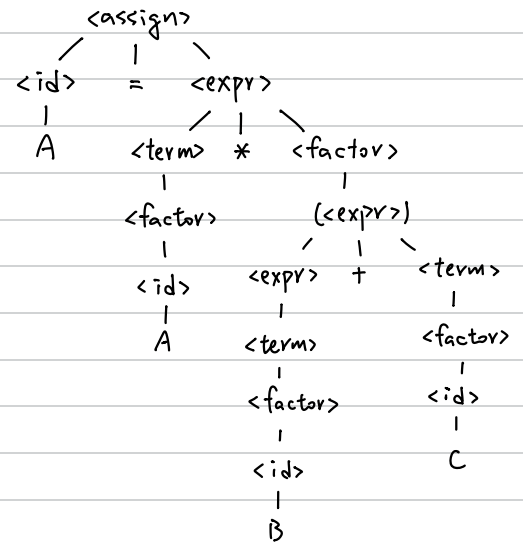 <assign>
<id> = <expr>
A <term> * <factor>
<factor> (<expr>)
<id> <expr> + <term>
A <term> <factor>
<factor> <id>
<id> C
B